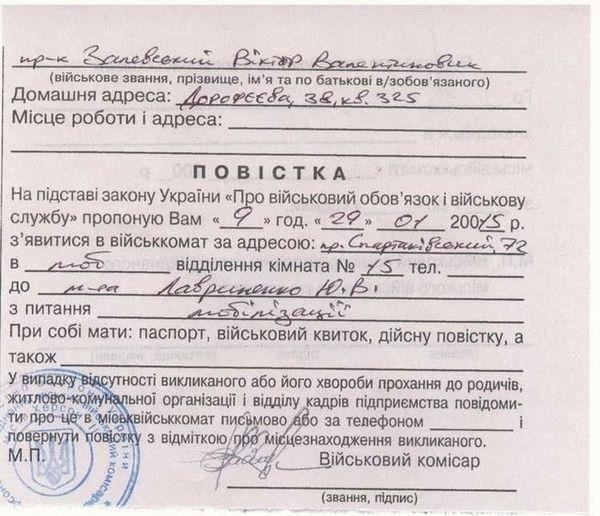 пр-к Залевський Віктор Валентинович
(військове звання, прізвище, ім’я та по батькові в/зобов’язаного)
Домашня адреса: Дорофєєва, 38, кв. 325
Місце роботи і адреса:
ПОВІСТКА
На підставі закону України «Про військовий обов’язок і військову
службу» пропоную Вам «9» год. «29» 01 20015 р.
з’явитися в військкомат за адресою: пр. 72
в моб відділення кімната № 15 тел.
до Лавриненко Ю.В.
з питання мобілізації
При собі мати: паспорт, військовий квиток, дійсну повістку, а
також
У випадку відсутності викликаного або його хвороби прохання до родичів,
житлово-комунальної організації і відділу кадрів підприємства повідоми-
ти про це в міськвійськкомат письмово або за телефоном і
повернути повістку з відміткою про місцезнаходження викликаного.
М.П. Військовий комісар
(звання, підпис)